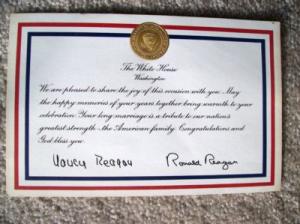 The White House
Washington
We are pleased to share the joy of this occasion with you. May
the happy memories of your years together bring warmth to your
celebration. Your long marriage is a tribute to our nation's
greatest strength - the American family. Congratulations and
God bless you.
Nancy Reagan Ronald Reagan